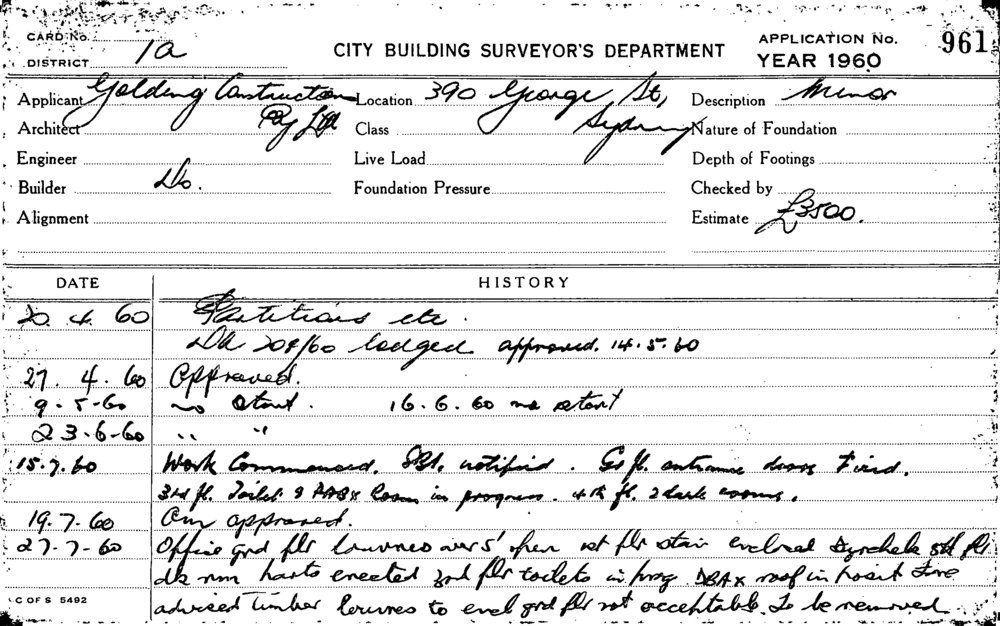 CARD No.
DISTRICT 1a
CITY BUILDING SURVEYOR'S DEPARTMENT
APPLICATION No. 961
YEAR 1960
Applicant Golding Construction Pty Ltd
Location 390 George St, Sydney
Description Minor
Architect
Class
Nature of Foundation
Engineer
Live Load
Depth of Footings
Builder Do.
Foundation Pressure
Checked by
Alignment
Estimate £3500.
DATE HISTORY
20. 4. 60 Partitions etc.
DA 208/60 lodged approved. 14.5.60
27. 4. 60 Approved.
9-5-60 no start. 16.6.60 no start
23-6-60 " "
15.7.60 Work Commenced. notified. Gr fl. entrance doors Fixed.
3rd fl. Toilet & PABX Room in progress. 4th fl. 2 dark rooms.
19.7.60 approved.
27-7-60 Office grd flr louvres over 5' open 1st flr stair enclosed flr
dk rm erected 3rd flr toilets in prog roof in
advised timber louvres to encl grd flr not acceptable. To be removed
C OF S 5492